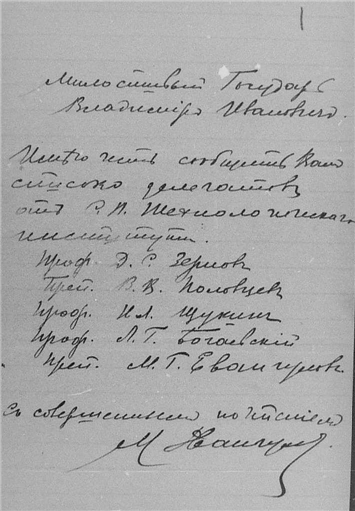 Милостивый Государь
Владиміръ Ивановичъ.
Имѣю честь сообщить Вамъ
списокъ делегатовъ
отъ С. П. Технологическаго
института.
Проф. Д. С. Зерновъ
Преп. В. В. Половцевъ
Проф. Н. Л. Щукинъ
Проф. Л. Г. Богаевскій
Преп. М. Г. Евангуловъ
Съ совершеннымъ почтеніемъ
М